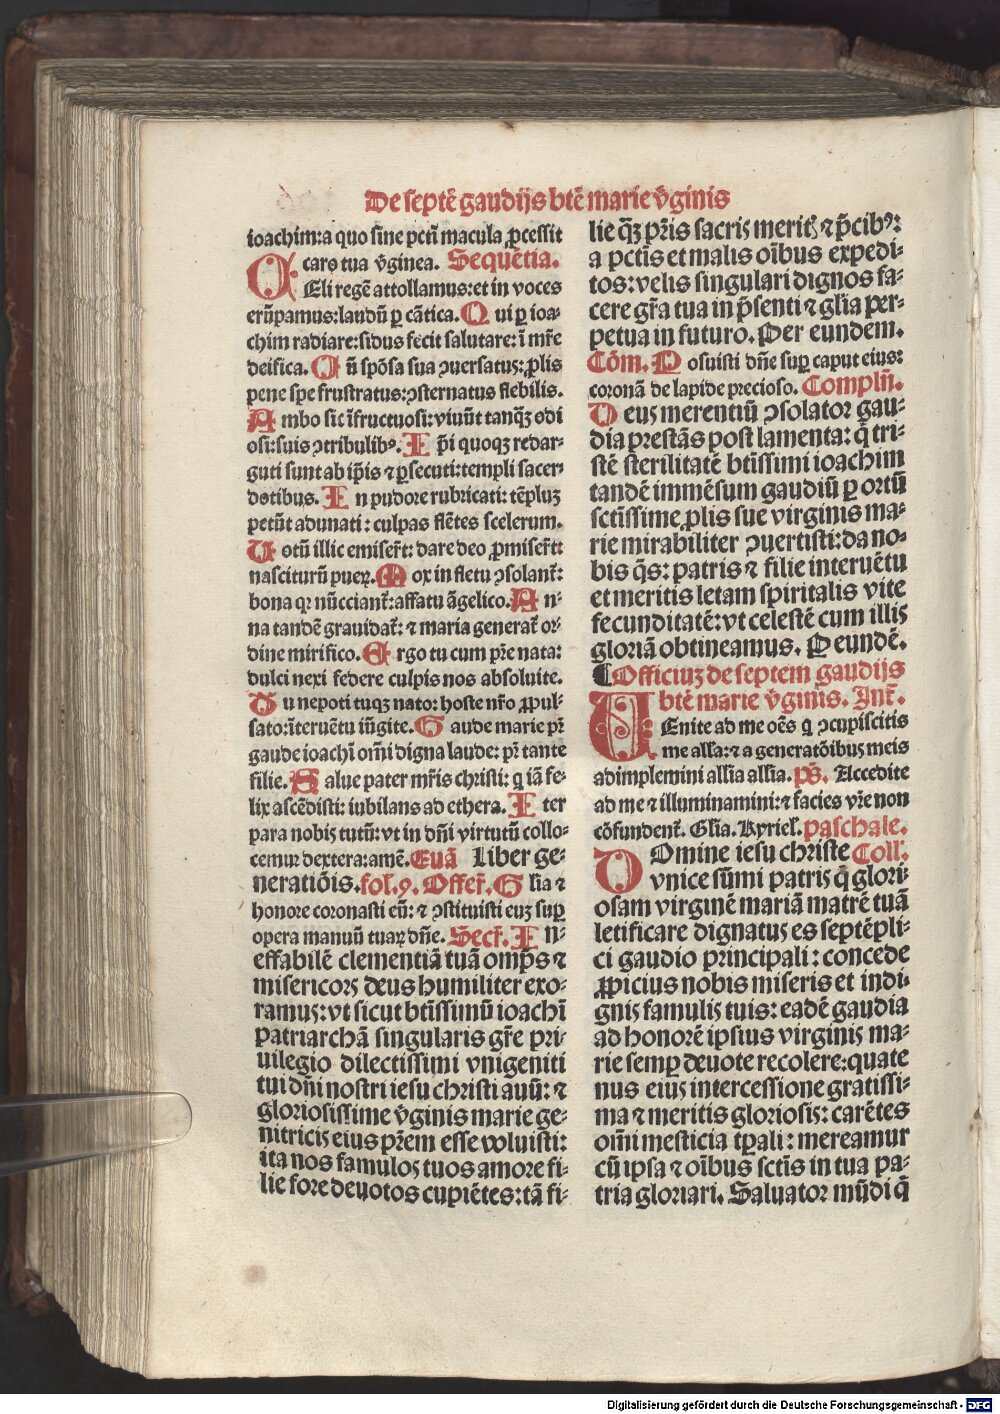 De septē gaudijs btē marie v̄ginis
ioachim: a quo sine pctī macula ꝓcessit
caro tua v̄ginea. Sequētia.
CEli regē attollamus: et in voces
erūpamus: laudū ꝑ cātica. Qui ꝑ ioa-
chim radiare: sidus fecit salutare: ī mr̄e
deifica. Cū spōsa sua ꝯuersatus: ꝓlis
pene spe frustratus: ꝯsternatus flebilis.
Ambo sic īfructuosi: viuūt tanqꝫ odi
osi: suis ꝯtribulibꝰ. Ipi quoqꝫ redar-
guti sunt ab ip̄is ⁊ ꝑsecuti: templi sacer-
dotibus. In pudore rubricati: tēpluꝫ
petūt adunati: culpas flētes scelerum.
Uotū illic emiser̄t: dare deo ꝓmiser̄t:
nasciturū pueꝝ. Mox in fletu ꝯsolant̄:
bona qꝛ nūcciant̄: affatu āgelico. An-
na tandē grauidat̄: ⁊ maria generat̄ oꝛ
dine mirifico. Ergo tu cum pr̄e nata:
dulci nexi federe culpis nos absoluite.
Tu nepoti tuqꝫ nato: hoste nr̄o ꝓpul-
sato: īteruētu iūgite. Gaude marie pr̄
gaude ioachī om̄i digna laude: pr̄ tante
filie. Salue pater mr̄is christi: q iā fe-
lix ascēdisti: iubilans ad ethera. Iter
para nobis tutū: vt in dn̄i virtutū collo-
cemur dextera: amē. Euā Liber ge-
neratiōis. fol. 9. Offer̄. Glia ⁊
honore coronasti eū: ⁊ ꝯstituisti euꝫ suꝑ
opera manuū tuaꝝ dn̄e. Secr̄. In-
effabilē clementiā tuā omp̄s ⁊
misericors deus humiliter exo-
ramus: vt sicut btissimū ioachī
patriarchā singularis gr̄e pri-
uilegio dilectissimi vnigeniti
tui dn̄i nostri iesu christi auū: ⁊
gloriosissime v̄ginis marie ge-
nitricis eius pr̄em esse voluisti:
ita nos famulos tuos amore fi-
lie fore deuotos cupiētes: tā fi-
lie qꝫ pr̄is sacris merit ⁊ p̄cibꝰ:
a pctīs et malis oībus expedi-
tos: velis singulari dignos fa-
cere gr̄a tua in p̄senti ⁊ gl̄ia per-
petua in futuro. Per eundem.
Cōm. Posuisti dn̄e suꝑ caput eius:
coronā de lapide precioso. Compln̄.
Deus merentiū ꝯsolator gau-
dia prestās post lamenta: q̄ tri-
stē sterilitatē btissimi ioachim
tandē immēsum gaudiū ꝑ ortū
sctīssime ꝓlis sue virginis ma-
rie mirabiliter ꝯuertisti: da no-
bis q̄s: patris ⁊ filie interuētu
et meritis letam spiritalis vite
fecunditatē: vt celestē cum illis
gloriā obtineamus. P eundē.
Officiuꝫ de septem gaudijs
btē marie v̄ginis. Int̄.
UEnite ad me oēs q ꝯcupiscitis
me alla: ⁊ a generatōibus meis
adimplemini allia allia. ps̄. Accedite
ad me ⁊ illuminamini: ⁊ facies vr̄e non
cōfundent̄. Glia. Kyriel. paschale.
DOmine iesu christe Coll.
vnice sūmi patris q̄ glori-
osam virginē mariā matrē tuā
letificare dignatus es septēpli-
ci gaudio principali: concede
ꝓpicius nobis miseris et indi-
gnis famulis tuis: eadē gaudia
ad honorē ipsius virginis ma-
rie semꝑ deuote recolere: quate
nus eius intercessione gratissi-
ma ⁊ meritis gloriosis: carētes
om̄i mesticia tꝑali: mereamur
cū ipsa ⁊ oībus sctīs in tua pa-
tria gloriari. Saluator mūdi q̄
Digitalisierung gefördert durch die Deutsche Forschungsgemeinschaft - DFG